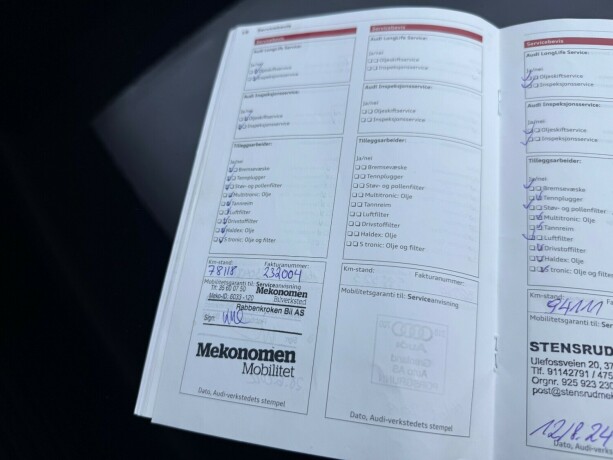 Servicebevis
Audi LongLife Service:
Ja/nei
Oljeskiftservice
Inspeksjonsservice
Audi Inspeksjonsservice:
Oljeskiftservice
Inspeksjonsservice
Tilleggsarbeider:
Ja/nei
Bremsevæske
Tennplugger
Støv- og pollenfilter
Multitronic: Olje
Tannreim
Luftfilter
Drivstoffilter
Haldex: Olje
S tronic: Olje og filter
Km-stand: Fakturanummer:
78118 232004
Mobilitetsgaranti til: Serviceanvisning
Tlf. 35 60 07 50 Mekonomen
Meko-ID: 6033 -120 Bilverksted
Rabbenkroken Bil AS
Sign:
Mekonomen
Mobilitet
Dato, Audi-verkstedets stempel
Servicebevis
Audi LongLife Service:
Ja/nei
Oljeskiftservice
Inspeksjonsservice
Audi Inspeksjonsservice:
Oljeskiftservice
Inspeksjonsservice
Tilleggsarbeider:
Ja/nei
Bremsevæske
Tennplugger
Støv- og pollenfilter
Multitronic: Olje
Tannreim
Luftfilter
Drivstoffilter
Haldex: Olje
S tronic: Olje og filter
Km-stand: Fakturanummer:
Mobilitetsgaranti til: Serviceanvisning
Dato, Audi-verkstedets stempel
Servicebevis
Audi LongLife Service:
Ja/nei
Oljeskiftservice
Inspeksjonsservice
Audi Inspeksjonsservice:
Oljeskiftservice
Inspeksjonsservice
Tilleggsarbeider:
Ja/nei
Bremsevæske
Tennplugger
Støv- og pollenfilter
Multitronic: Olje
Tannreim
Luftfilter
Drivstoffilter
Haldex: Olje
S tronic: Olje og filter
Km-stand:
94111
Mobilitetsgaranti til: Se
STENSRUD
Ulefossveien 20, 37
Tlf. 91142791 / 475
Orgnr. 925 923 230
post@stensrudmek
12/8.24
Dato, Audi-ve